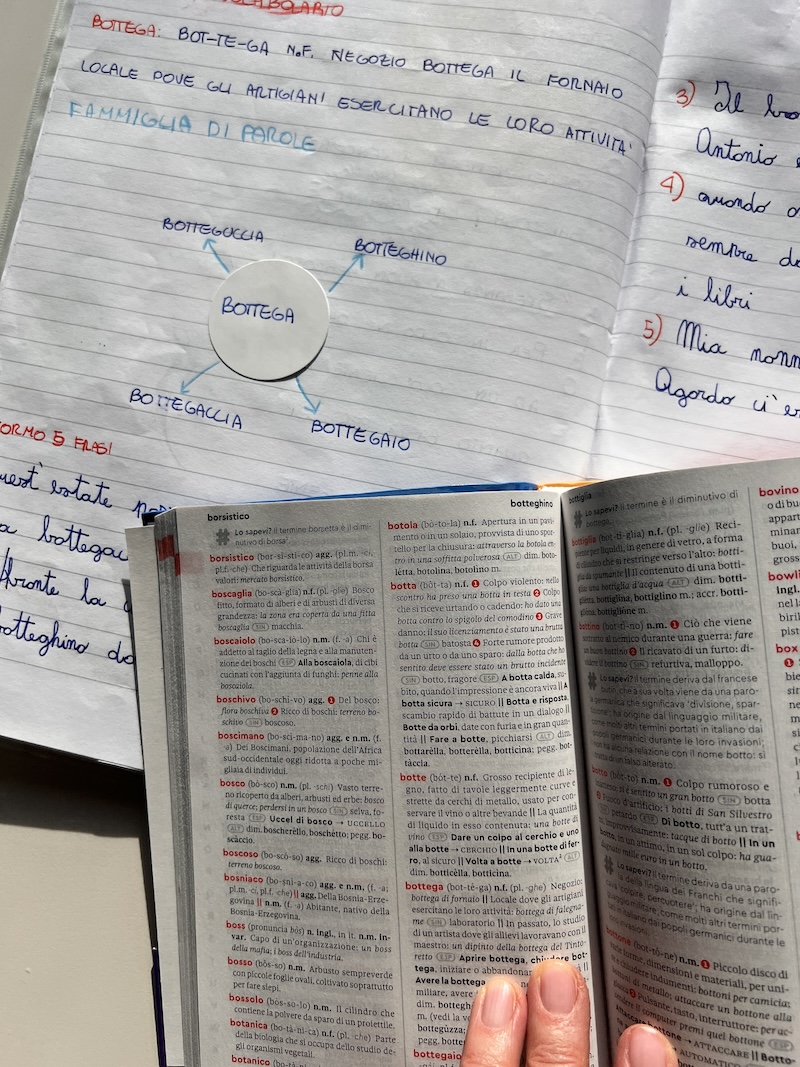 VOCABOLARIO
BOTTEGA: BOT-TE-GA N.F. NEGOZIO BOTTEGA IL FORNAIO
LOCALE DOVE GLI ARTIGIANI ESERCITANO LE LORO ATTIVITA'
FAMMIGLIA DI PAROLE
BOTTEGUCCIA
BOTTEGHINO
BOTTEGA
BOTTEGACCIA
BOTTEGAIO
FORMO 5 FRASI
estate
bottegac
fronte la
botteghino do
3) Il
Antonio
4) quando
sempre
i libri
5) Mia nonn
Agordo ci
borsistico
# Lo sapevi? Il termine borzetta è il dimi-
nutivo di 'borsa'.
borsistico (bor-sì-sti-co) agg. (pl.m. -ci,
pl.f. -che) Che riguarda le attività della borsa
valori: mercato borsistico.
boscaglia (bo-scà-glia) n.f. (pl. -glie) Bosco
fitto, formato di alberi e di arbusti di diversa
grandezza: la zona era coperta da una fitta
boscaglia SIN macchia.
boscaiolo (bo-sca-iò-lo) n.m. (f. -a) Chi è
addetto al taglio della legna e alla manuten-
zione dei boschi ESP Alla boscaiola, di cibi
cucinati con l'aggiunta di funghi: penne alla
boscaiola.
boschivo (bo-schì-vo) agg. 1 Del bosco:
flora boschiva 2 Ricco di boschi: terreno bo-
schivo SIN boscoso.
boscimano (bo-sci-ma-no) agg. e n.m. (f.
-a) Dei Boscimani, popolazione dell'Africa
sud-occidentale oggi ridotta a poche mi-
gliaia di individui.
bosco (bò-sco) n.m. (pl. -schi) Vasto terre-
no ricoperto da alberi, arbusti ed erbe: bosco
di querce; perdersi in un bosco SIN selva, fo-
resta ESP Uccel di bosco → UCCELLO
ALT dim. boscherèllo, boschétto; pegg. bo-
scàccio.
boscoso (bo-scó-so) agg. Ricco di boschi:
terreno boscoso.
bosniaco (bo-snì-a-co) agg. e n.m. (f. -a;
pl.m. -ci, pl.f. -che) || agg. Della Bosnia-Erze-
govina || n.m. (f. -a) Abitante, nativo della
Bosnia-Erzegovina.
boss (pronuncia bòs) n. ingl., in it. n.m. in-
var. Capo di un'organizzazione: un boss
della mafia; i boss dell'industria.
bosso (bòs-so) n.m. Arbusto sempreverde
con piccole foglie ovali, coltivato soprattutto
per fare siepi.
bossolo (bòs-so-lo) n.m. Il cilindro che
contiene la polvere da sparo di un proiettile.
botanica (bo-tà-ni-ca) n.f. (pl. -che) Parte
della biologia che si occupa dello studio de-
gli organismi vegetali.
botanico
botteghino
botola (bò-to-la) n.f. Apertura in un pavi-
mento o in un solaio, provvista di uno spor-
tello per la chiusura: attraverso la botola en-
trò in una soffitta polverosa ALT dim. boto-
létta, botolina, botolino m.
botta (bòt-ta) n.f. 1 Colpo violento: nello
scontro ha preso una botta in testa 2 Colpo
che si riceve urtando o cadendo: ho dato una
botta contro lo spigolo del comodino 3 Grave
danno: il suo licenziamento è stato una brutta
botta SIN batosta 4 Forte rumore prodotto
da un urto o da uno sparo: dalla botta che ho
sentito deve essere stato un brutto incidente
SIN botto, fragore ESP A botta calda, su-
bito, quando l'impressione è ancora viva || A
botta sicura → SICURO || Botta e risposta,
scambio rapido di battute in un dialogo ||
Botte da orbi, date con furia e in gran quan-
tità || Fare a botte, picchiarsi ALT dim.
bottarèlla, botterèlla, botticina; pegg. bot-
tàccia.
botte (bót-te) n.f. Grosso recipiente di le-
gno, fatto di tavole leggermente curve e
strette da cerchi di metallo, usato per con-
servare il vino o altre bevande || La quantità
di liquido in esso contenuta: una botte di
vino ESP Dare un colpo al cerchio e uno
alla botte → CERCHIO || In una botte di fer-
ro, al sicuro || Volta a botte → VOLTA² ALT
dim. botticèlla, botticina.
bottega (bot-té-ga) n.f. (pl. -ghe) Negozio:
bottega di fornaio || Locale dove gli artigiani
esercitano le loro attività: bottega di falegna-
me SIN laboratorio || In passato, lo studio
di un artista dove gli allievi lavoravano con il
maestro: un dipinto della bottega del Tinto-
retto ESP Aprire bottega, chiudere bot-
tega, iniziare o abbandonare
Avere la bottega
miliare, avere
dim. botteghi
m. (vedi la vo
botteguzza;
bottegaio
bottiglia
# Lo sapevi? Il termine è il diminutivo di
bottega.
bottiglia (bot-tì-glia) n.f. (pl. -glie) Reci-
piente per liquidi, in genere di vetro, a forma
di cilindro che si restringe verso l'alto: botti-
glia da spumante || Il contenuto di una botti-
glia: una bottiglia d'acqua ALT dim. botti-
gliétta, bottiglina, bottiglino m.; accr. botti-
glióna, bottiglióne m.
bottino (bot-tì-no) n.m. 1 Ciò che viene
sottratto al nemico durante una guerra: fare
un buon bottino 2 Il ricavato di un furto: di-
videre il bottino SIN refurtiva, malloppo.
# Lo sapevi? Il termine deriva dal francese
butin, che a sua volta viene da una paro-
la germanica che significava 'divisione, spar-
tizione'; ha origine dal linguaggio militare,
come molti altri termini portati in italiano dai
popoli germanici durante le loro invasioni;
non ha alcuna relazione con il nome botto.
botto (bòt-to) n.m. 1 Colpo rumoroso e
si è sentito un gran botto SIN botta
2 Fuoco d'artificio: i botti di San Silvestro
SIN petardo ESP Di botto, tutt'a un trat-
to, improvvisamente: tacque di botto || In un
botto, in un attimo, in un sol colpo: ha gua-
dagnato mille euro in un botto.
# Lo sapevi? Il termine deriva da una paro-
la della lingua dei Franchi che signifi-
cava 'colpire, percuotere'; ha origine dal lin-
guaggio militare, come molti altri termini por-
tati in italiano dai popoli germanici durante le
loro invasioni.
bottone (bot-tó-ne) n.m. 1 Piccolo disco di
varie forme, dimensioni e materiali, per uni-
re o chiudere indumenti: bottoni per camicia;
attaccare un bottone alla
2 Pulsante, tasto, interruttore: per ac-
cendere il computer premi quel bottone ESP
Attaccare bottone → ATTACCARE || Botto-
AUTOMATICO
bovino
o di bu
appart
minan
buoi,
di
bowli
ingl.
nel l
biril
pist
box